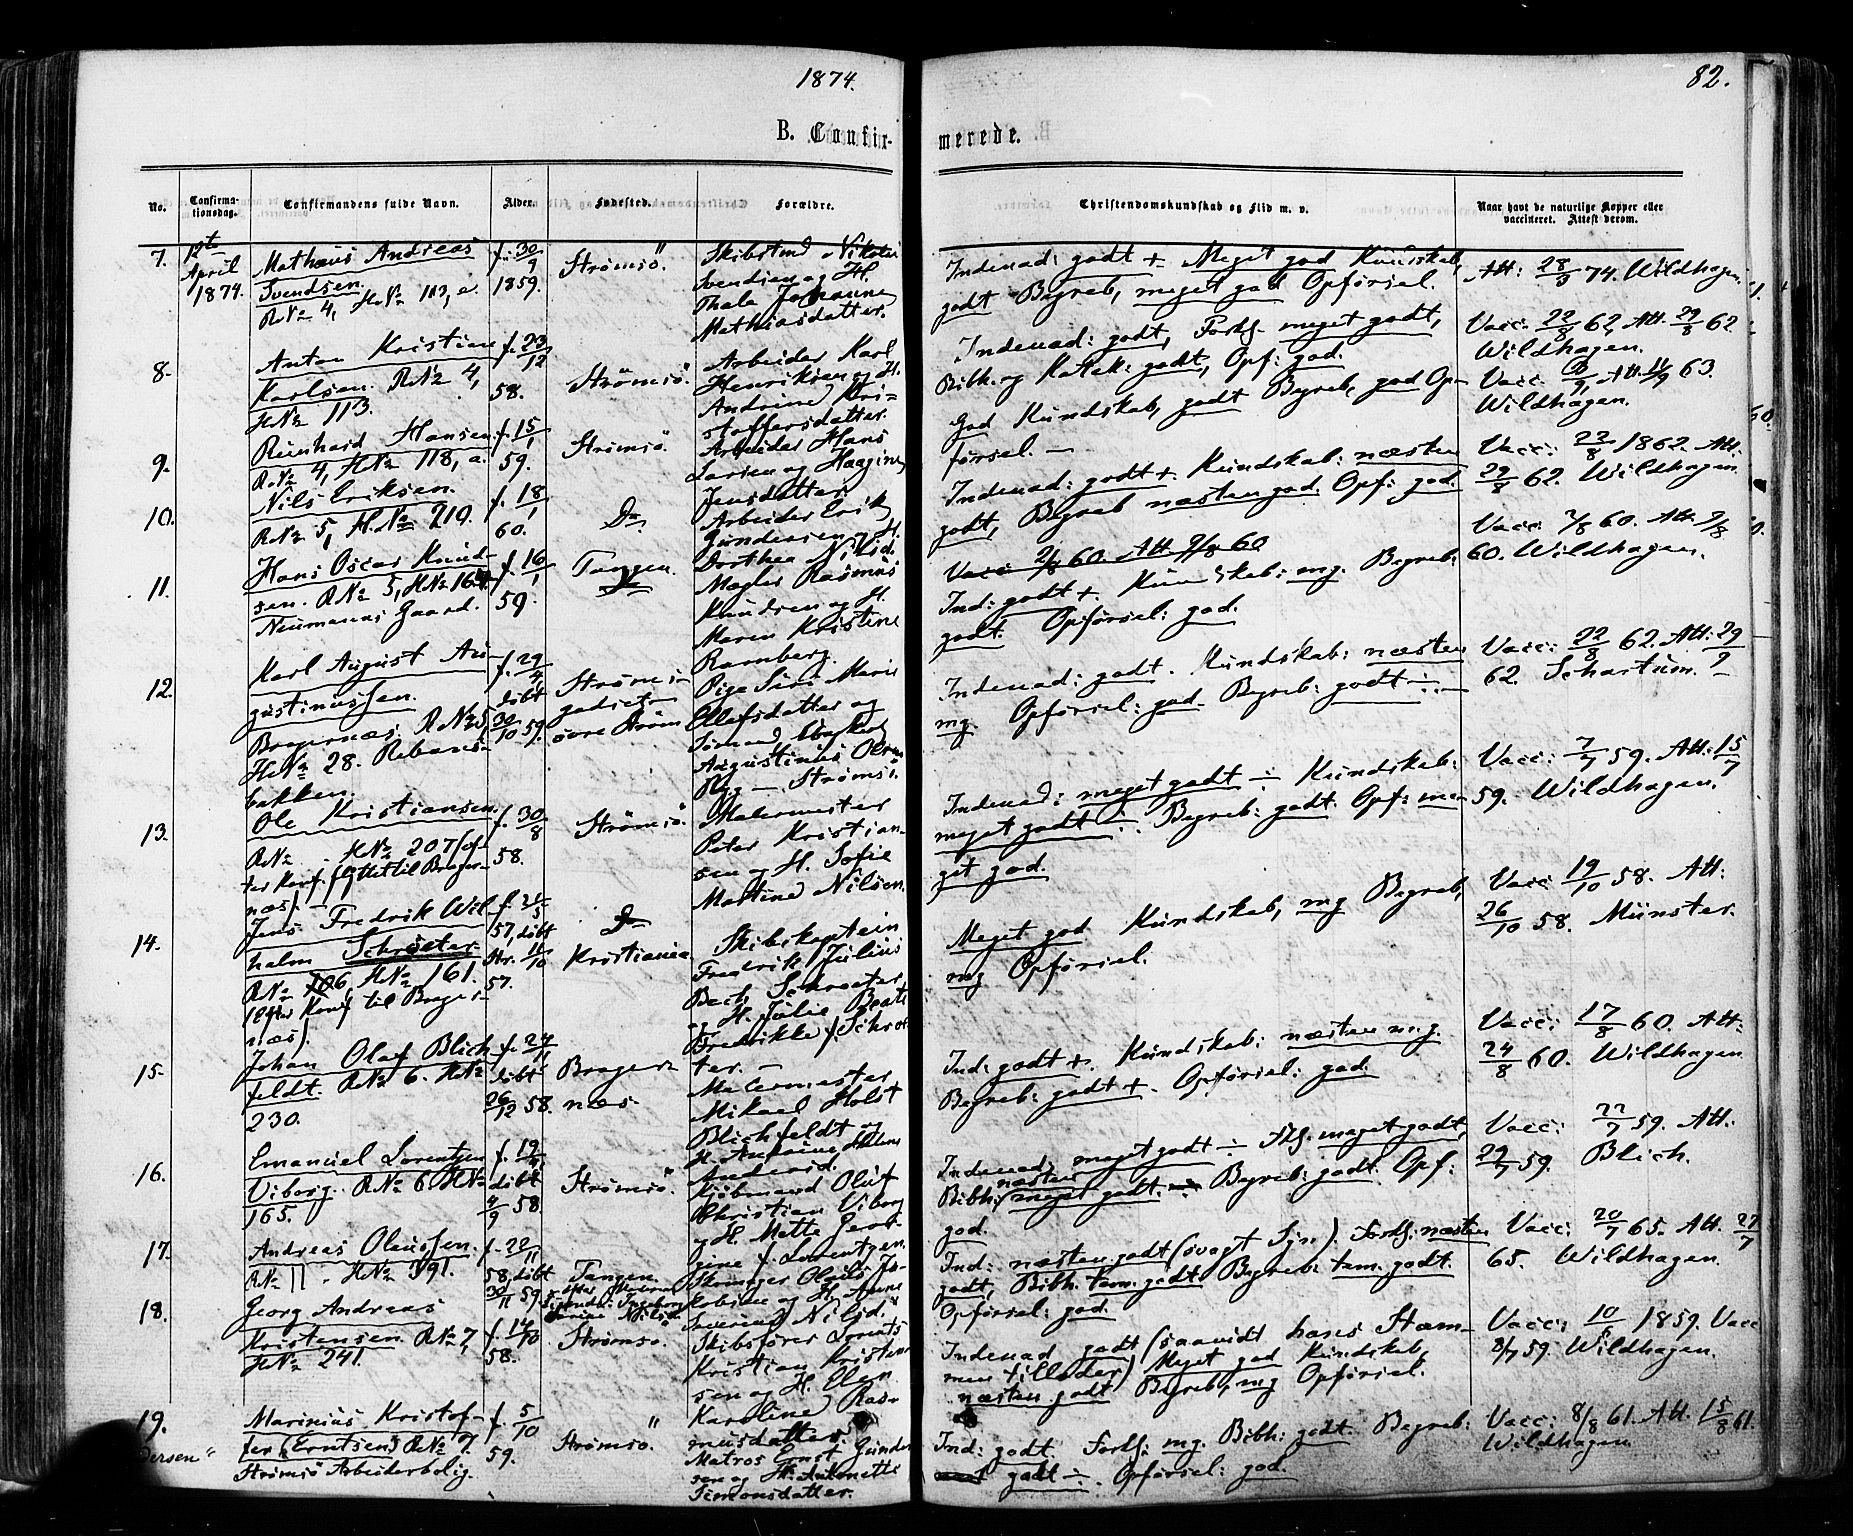 1874.
82.
B. Confir-
merede.
No.
Confirma-
tionsdag.
Confirmandens fulde Navn.
Alder.
Fødested.
Forældre.
Christendomskundskab og Flid m. v.
Naar havt de naturlige Kopper eller
vaccineret. Attest derom.
7.
12te
April
1874.
Mathæus Andreas
Svendsen.
R№ 4, H№ 113, a.
f. 30/9
1859.
Strømsö.
Skibstmd Nikolai
Svendsen og H.
Thala Johanne
Mathiasdatter.
Indenad: godt + Meget god Kundskab,
godt Begreb, meget god Opførsel.
Att: 28/3 74. Wildhagen.
8.
Anton Kristian
Karlsen. R№ 4,
H№ 113.
f. 23/12
58.
Strømsö.
Arbeider Karl
Henriksen og H.
Andrine Kri-
stoffersdatter.
Indenad: godt, Forkl. meget godt,
Bibh. og Katek: godt, Opf: god.
Vacc. 22/8 62, Att. 29/8 62
Wildhagen.
9.
Reinhard Hansen
R.№ 4, H№ 118, a.
f. 15/1
59.
Strømsö.
Arbeider Hans
Larsen og
Jensdatter
God Kundskab, godt Begreb, god Op-
førsel. —
Vacc. Att. 11/9 63.
Wildhagen.
10.
Nils Eriksen.
R№ 5, H.№ 210.
f. 18/1
60.
Do
Arbeider Erik
Gundersen og H.
Dorthea Nilsd.
Indenad: godt + Kundskab: næsten
godt, Begreb næsten god. Opf: god
Vacc: 22/8 1862. Att.
29/8 62. Wildhagen
11.
Hans Oscar Knud-
sen. R№ 5, H№ 164
Neumanns Gaard.
f. 16/1
59.
Tangen.
Do
Mægler Rasmus
Knudsen og H.
Maren Kristine
Ramberg.
Vacc 2/8 60. Att 9/8 60
Ind: godt +. Kundskab: mg. Begreb:
godt. Opførsel: god.
Vacc. 2/8 60. Att 9/8
60. Wildhagen.
12.
Karl August Au-
gustinussen.
Bragernæs. R№ 5
H№ 28. Rebans-
bakken.
f. 29/4
döbt
30/10 59.
Strömsgodset
övre Ström
Pige Siri Marie
Olafsdatter og
Sömand
Augustinus Olsen
Ryg — Strömsö.
Indenad: godt. Kundskab: næsten
mg. Opførsel: god. Begreb: godt ÷.
Vacc: 22/8 62. Att: 29/9
62. Schartum. —
13.
Ole Kristiansen.
R№ H№ 207 (ef-
ter Konf. flyttet til Brager-
næs) —
f. 30/8
58.
Strömsö.
Malermester
Peter Kristian-
sen og H. Sofie
Martine Nilsen.
Indenad: meget godt ÷ Kundskab:
meget godt ÷. Begreb: godt. Opf: me-
get god.
Vacc: 7/7 59. Att: 15/7
59. Wildhagen.
14.
Jens Fredrik Wil-
halm Schrøeter
R№ 6, H№ 161.
(efter Konf til Brager-
næs).
f. 21/5
57, döbt
Str. 11/10
57.
Do
Kristiania
Skibskaptein
Fredrik Julius
Bech Schroeter
og H. Julie Beate
Fredrikke f. Schroe-
ter. —
Meget god Kundskab, mg Begreb,
mg Opførsel.
Vacc 19/10 58. Att:
26/10 58. Münster.
15.
Johan Olaf Blich
feldt. R№ 6. H№
230.
f. 24/11
döbt
26/12 58.
Brager-
næs.
Malermester
Mikael Holst
Blichfeldt og
H. Antoine Helene
Andersd.
Ind: godt +. Kundskab: næsten mg.
Begreb: godt +. Opførsel: god.
Vacc: 17/8 60. Att:
24/8 60. Wildhagen
16.
Emanuel Lorentzen
Viborg. R№ 6 H№
165.
döbt
4/9 58
Strømsö.
Kjöbmand Oluf
Christian Viborg
og H. Mette Geor-
gine f. Lorentzen.
Indenad: meget godt ÷ Fkl. meget godt,
Bibh: næsten meget godt. Begreb: godt. Opf:
god.
Vacc: 22/7 59. Att:
29/7 59. Blich.
17.
Andreas Olaussen.
R№ 11. H№ 391.
f. 22/11
58, döbt
30/11 59.
Tangen
Skrænger Olaus Ja-
kobsen og H. Anne
Severine Nilsd.
Ind: næsten godt (svagt Syn). Forkl: næsten
godt, Bibh. tem. godt. Begreb: tem. godt.
Opførsel: god.
Vacc: 20/7 65. Att. 27/7
65. Wildhagen.
18.
Georg Andreas
Kristensen. R№ 7,
H№ 241.
f. 14/10
58.
Strømsö.
Skibsfører Lorents
Kristian Kristen-
sen og H. Elen
Karoline Ras-
musdatter.
Indenad godt (saavidt hans Stam-
men tillader) Meget god Kundskab,
næsten godt Begreb, mg Opførsel.
Vacc: 1859. Vacc
8/7 59. Wildhagen.
19.
Marinius Kristof-
fer (Erntsen) R№ 7.
Strömsö Arbeiderbolig.
f. 5/10
59.
Strømsö.
Matros Ernst Gunder-
sen og H. Antonette
Simonsdatter.
Ind: godt Forkl: mg. Bibh: godt. Begreb:
godt ÷. Opførsel: god.
Vacc: 8/8 61. Att. 15/8 61.
Wildhagen.